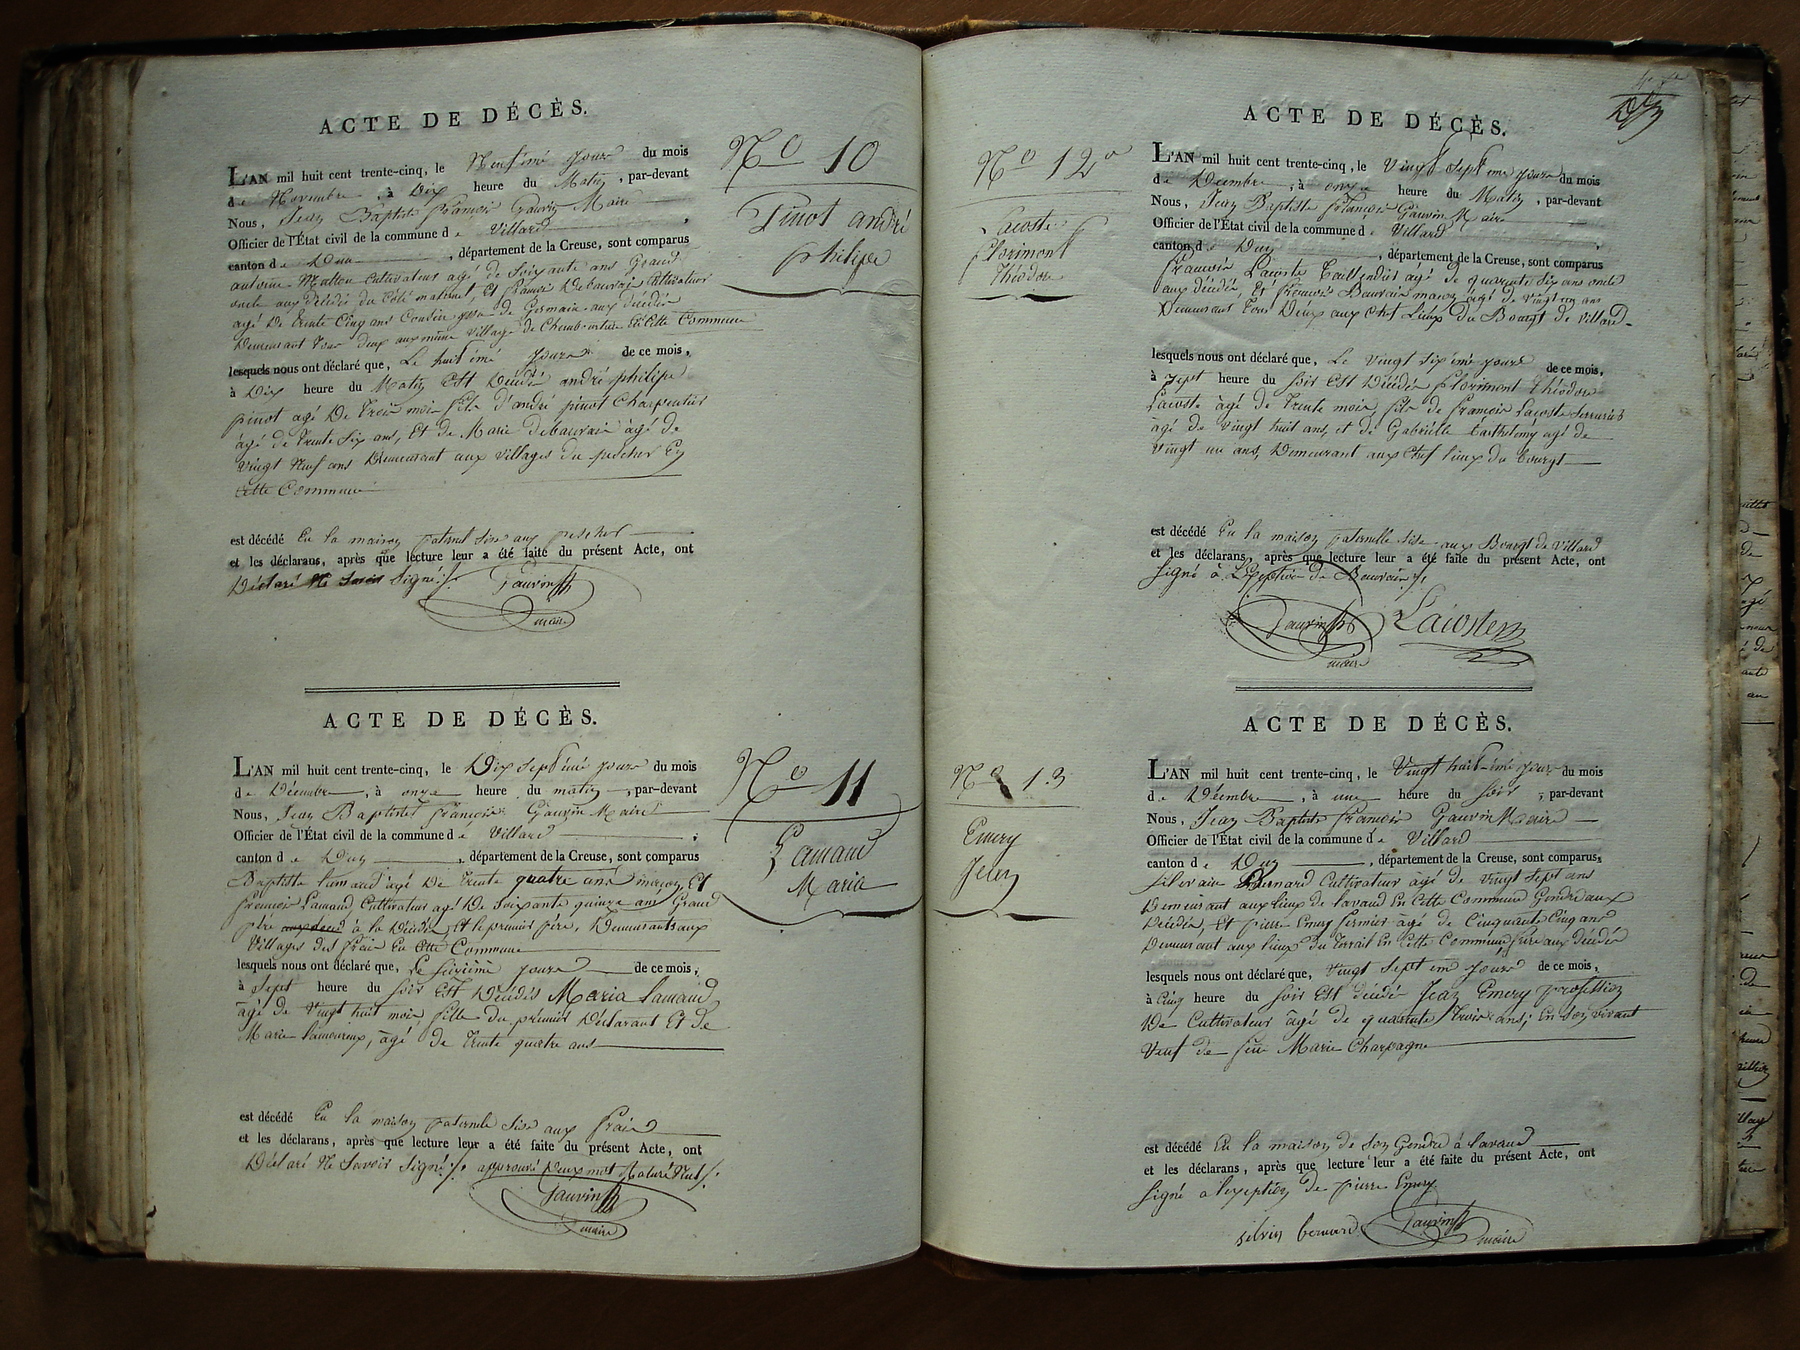 ACTE DE DÉCÈS.
L'AN mil huit cent trente-cinq, le Neufimé jour du mois
de Novembre, à Dix heure du Matin, par-devant
Nous, Jean Baptiste françois Gauvin Maire
Officier de l'État civil de la commune de Villard,
canton de Dun, département de la Creuse, sont comparus
antoine Mallou Cultivateur agé de Soixante ans Grand
oncle aux Décédé du Côté maternel, Et françois Debauvai Cultivateur
agé De trente Cinq ans Cousin de Germain aux décédé
Demeurant tous deux aux même Village de En Cette Commune
lesquels nous ont déclaré que, Le huit imé jour de ce mois,
à Dix heure du Matin Est Décédé andré philipe
pinot agé De trois mois fils d'andré pinot Charpentier
âgé de trente Six ans, Et de Marie debauvai agé de
vingt Neuf ans Demeurant aux villages du pescher En
Cette Commune
est décédé En la maison paternel Sise aux pescher
et les déclarans, après que lecture leur a été faite du présent Acte, ont
Déclaré Ne Savoir Signé ./. Gauvin
maire
N° 10
Pinot andré
philipe
ACTE DE DÉCÈS.
L'AN mil huit cent trente-cinq, le Dix Septimé jour du mois
de Décembre, à onze heure du matin, par-devant
Nous, Jean Baptiste françois Gauvin Maire
Officier de l'État civil de la commune de Villard,
canton de Dun, département de la Creuse, sont comparus
Baptiste Lamaud agé De trente quatre ans maçon, Et
françois Lamaud Cultivateur agé De Soixante quinze ans Grand
père à la Décédé, Et le premier père, Demeurants aux
Villages des frais En Cette Commune
lesquels nous ont déclaré que, Le Seizimé jour de ce mois,
à Sept heure du Soir Est Décédé Maria Lamaud
âgé de Vingt huit mois fille du premier Déclarant Et de
Marie Lamoureux, âgé de trente quatre ans
est décédé En la maison paternele Sise aux frais
et les déclarans, après que lecture leur a été faite du présent Acte, ont
Déclaré Ne Savoir Signé ./. approuvé Deux mot Raturé Nuls ./.
Gauvin
maire
N° 11
Lamaud
Maria
N° 12
Lacoste
Florimont
Théodore
ACTE DE DÉCÈS.
L'AN mil huit cent trente-cinq, le Vingt Sept ime jour du mois
de Décembre, à onze heure du Matin, par-devant
Nous, Jean Baptiste françois Gauvin Maire
Officier de l'État civil de la commune de Villard,
canton de Dun, département de la Creuse, sont comparus
françois Lacoste Taillendier agé de quarente Six ans oncle
aux décédé, Et françois Beauvais maçon agé de vingt un ans
Demeurant Tous Deux aux Chef Lieux du Bourgt de Villard
lesquels nous ont déclaré que, Le Vingt Sixiémé jour de ce mois,
à Sept heure du Soir Est Décédé Florimont Théodore
Lacoste âgé de trente mois, fils de françois Lacoste Serrurier
agé de vingt huit ans, et de Gabrielle Barthélemy agé de
vingt un ans, Demeurant aux Chef Lieux du bourgt
est décédé En la maison paternelle Sise aux Bourgt de Villard
et les déclarans, après que lecture leur a été faite du présent Acte, ont
Signé à L'Exception de Beauvais ./.
Gauvin Lacoste
maire
N° 13
Emery
Jean
ACTE DE DÉCÈS.
L'AN mil huit cent trente-cinq, le Vingt huit imé jour du mois
de Décembre, à une heure du Soir, par-devant
Nous, Jean Baptiste françois Gauvin Maire
Officier de l'État civil de la commune de Villard
canton de Dun, département de la Creuse, sont comparus
Silvain Bernard Cultivateur agé de vingt Sept ans
Demeurant aux lieux de Lavaud En Cette Commune Gendre aux
Décédé, Et pierre Emery fermier âgé de Cinquante Cinq ans
Demeurant aux lieux du Terrait En Cette Commune, frère aux décédé
lesquels nous ont déclaré que, Vingt Sept im jour de ce mois,
à Cinq heure du Soir Est décédé Jean Emery profession
De Cultivateur âgé de quarente trois ans; En Son vivant
Veuf de feu Marie Charpagne
est décédé En la maison de Son Gendre à Lavaud
et les déclarans, après que lecture leur a été faite du présent Acte, ont
Signé a l'exeption de pierre Emery
silvin bernard Gauvin
maire